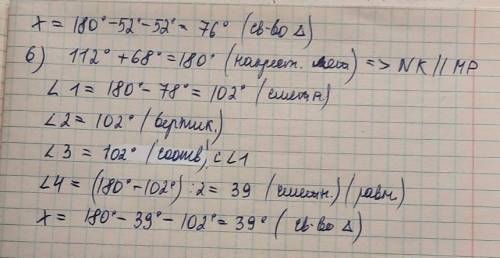 X = 180°-52°-52° = 76° (св-во Δ)
б) 112° + 68° = 180° => NK || MP
∠1 = 180° - 78° = 102° (смежн.)
∠2 = 102° (вертик.)
∠3 = 102° (соотв) с ∠1
∠4 = (180° - 102°) : 2 = 39 (смежн.) (равн)
X = 180° - 39° - 102° = 39° (св-во Δ)